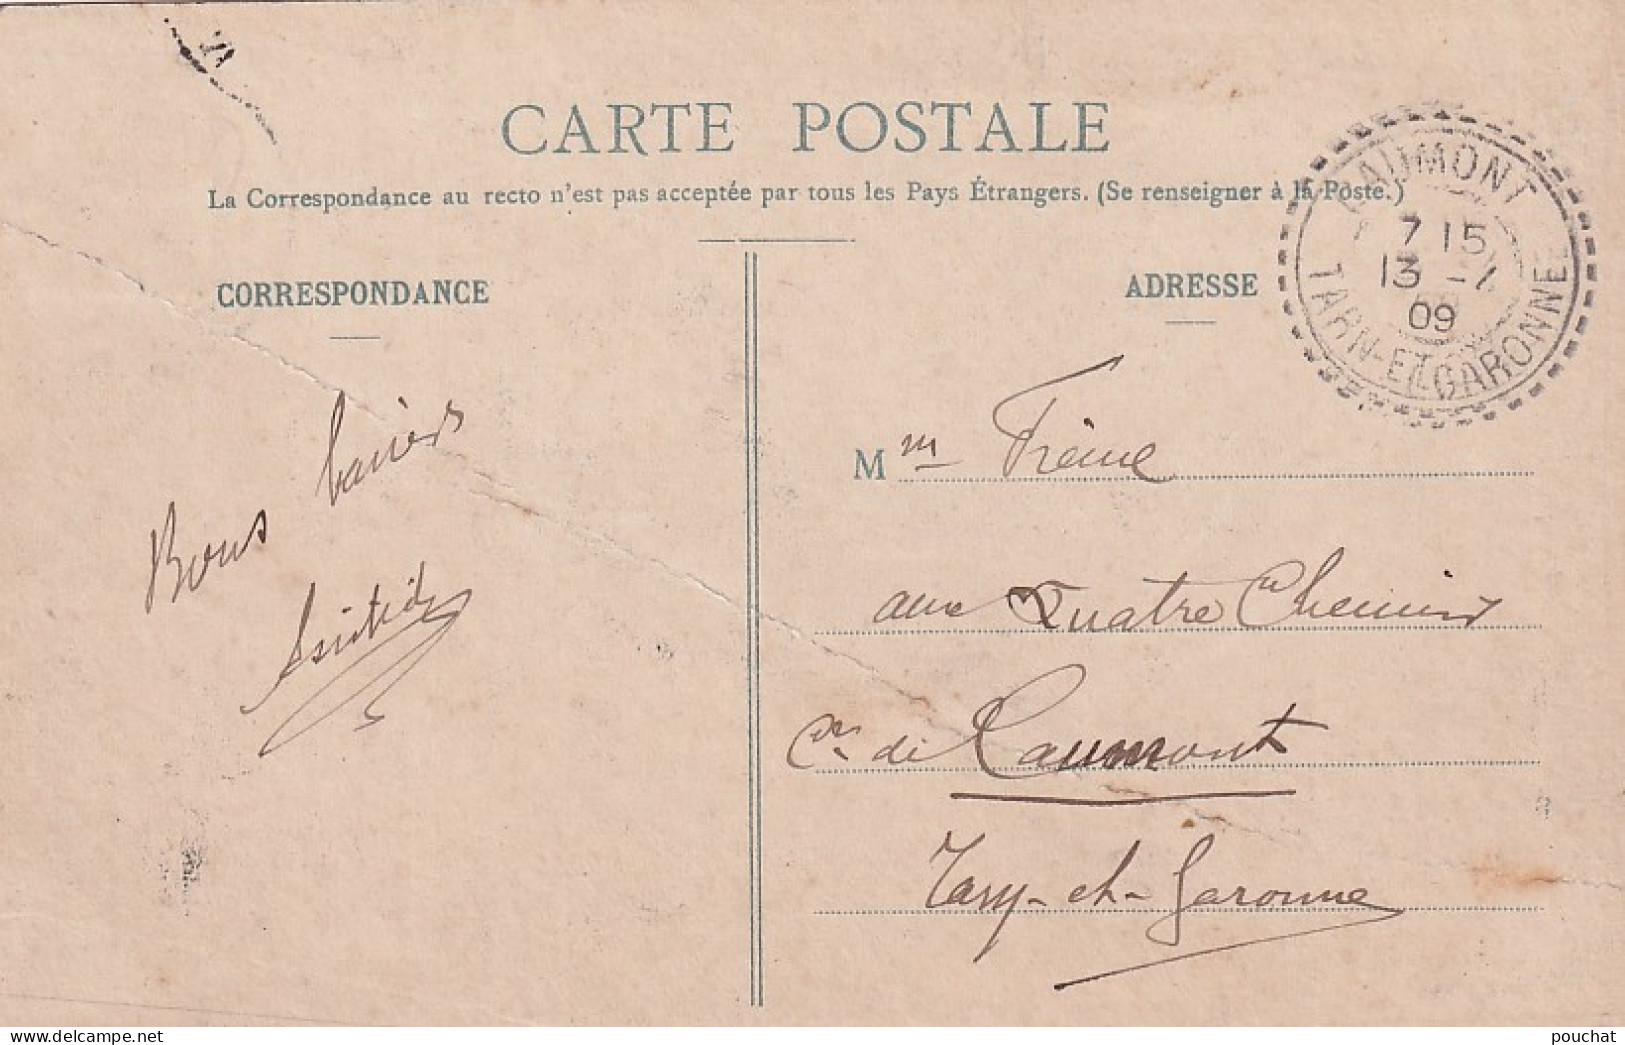 CARTE POSTALE
La Correspondance au recto n'est pas acceptée par tous les Pays Étrangers. (Se renseigner à la Poste.)
CORRESPONDANCE
ADRESSE
CAUMONT
7 15
13 -
09
TARN-ET-GARONNE
Bons baisers
Mm
aux Quatre Chemins
de Caumont
Tarn-et-Garonne
pouchat